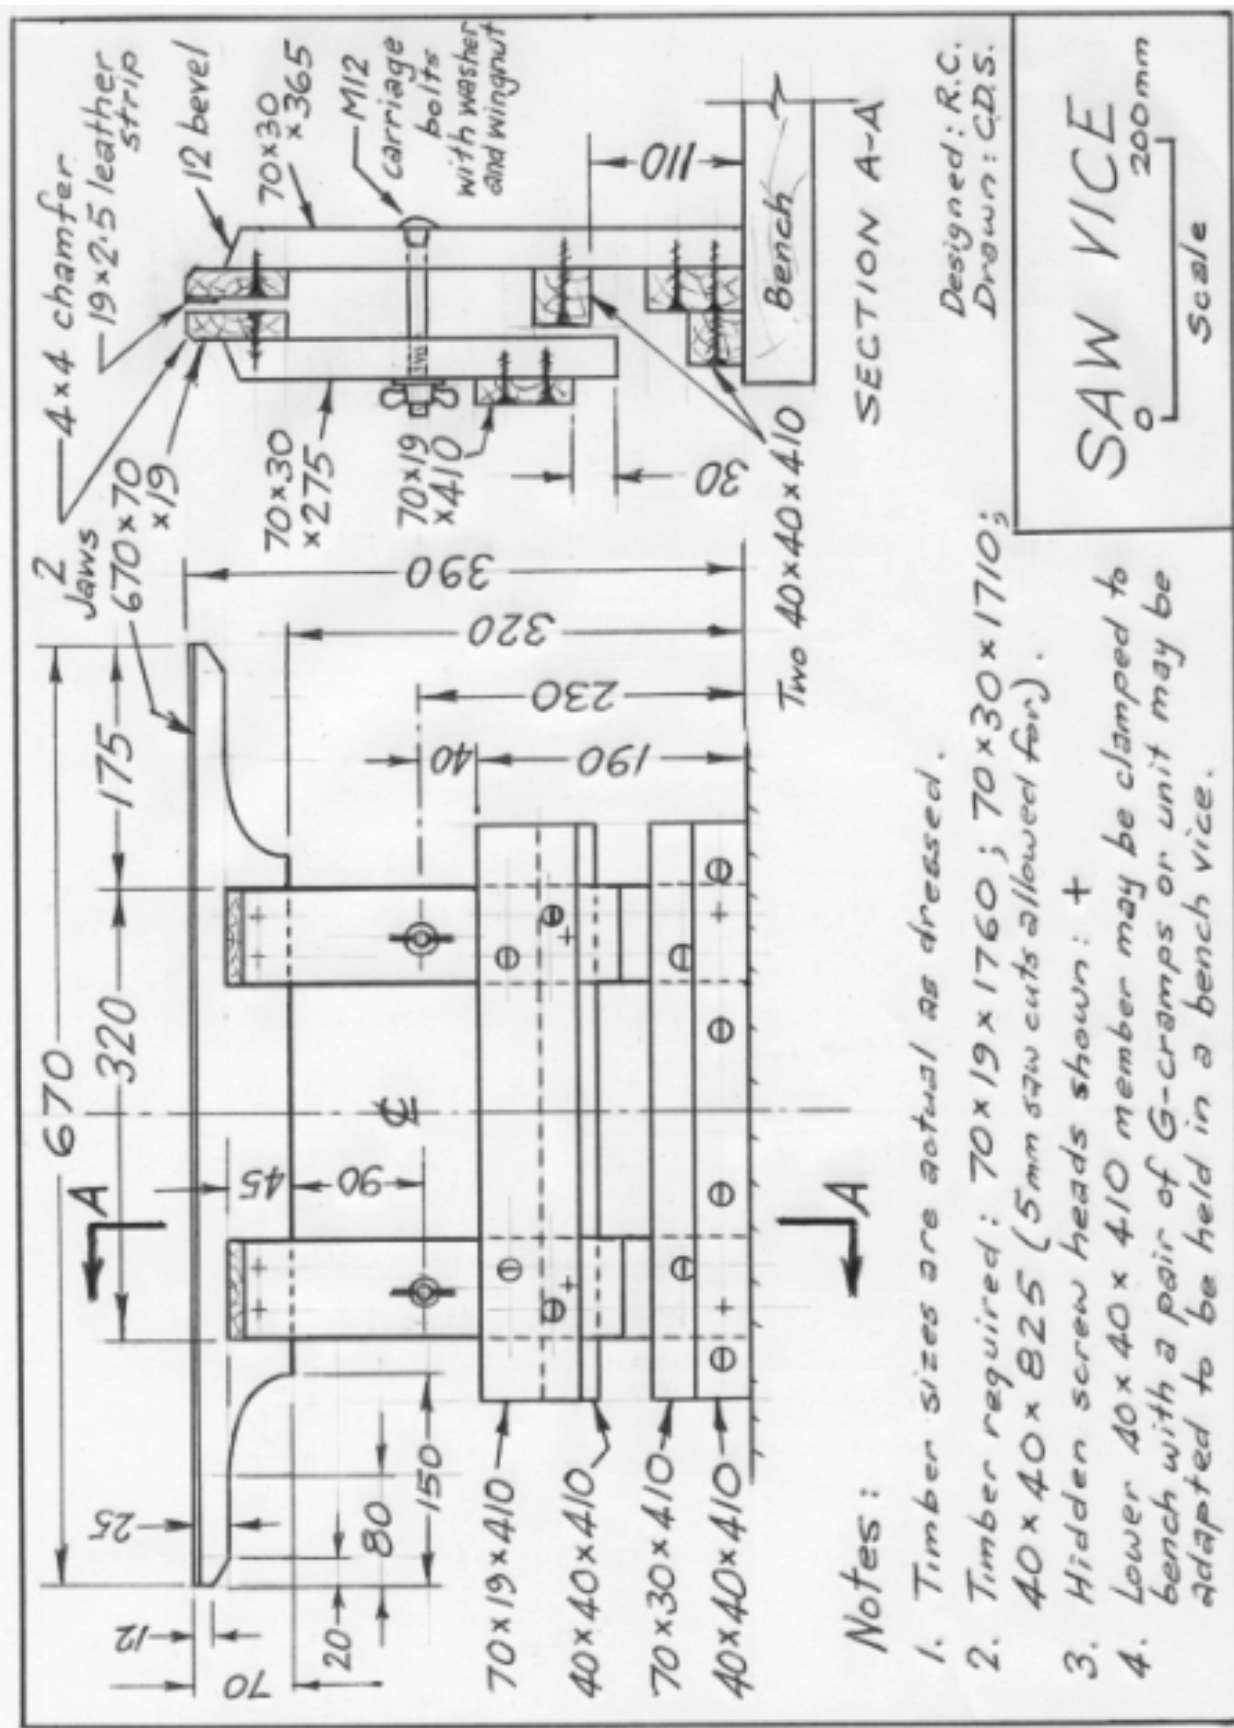 670
320
175
25
12
70
20
80
150
45
90
40
190
230
320
390
A
A
℄
70×19×410
40×40×410
70×30×410
40×40×410
2
Jaws
670×70
×19
4×4 chamfer
19×2·5 leather
strip
12 bevel
70×30
×365
M12
carriage
bolts
with washer
and wingnut
70×30
×275
70×19
×410
30
110
Bench
Two 40×40×410
SECTION A-A
Notes:
1. Timber sizes are actual as dressed.
2. Timber required: 70×19×1760; 70×30×1710;
40×40×825 (5mm saw cuts allowed for).
3. Hidden screw heads shown: +
4. Lower 40×40×410 member may be clamped to
bench with a pair of G-cramps or unit may be
adapted to be held in a bench vice.
Designed: R.C.
Drawn: C.D.S.
SAW VICE
0 200mm
Scale